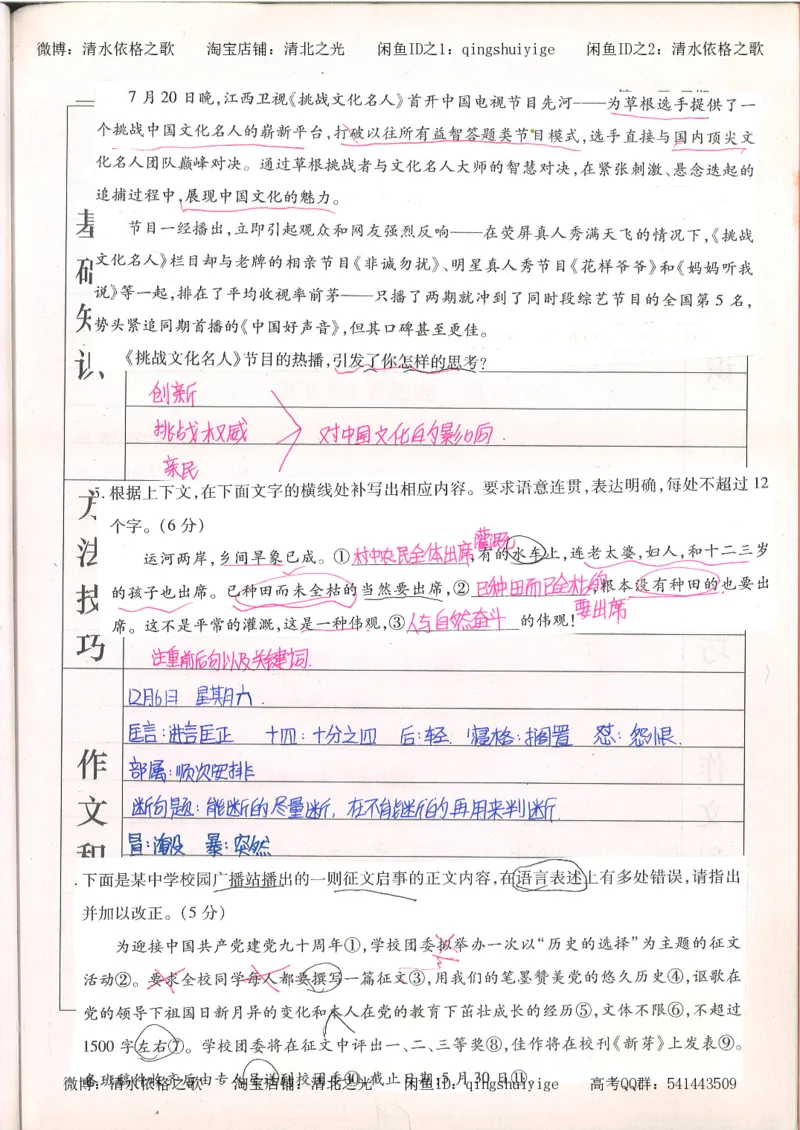 微博：清水依格之歌 淘宝店铺：清北之光 闲鱼ID之1：qingshuiyige 闲鱼ID之2：清水依格之歌
7月20日晚,江西卫视《挑战文化名人》首开中国电视节目先河——为草根选手提供了一
个挑战中国文化名人的崭新平台,打破以往所有益智答题类节目模式,选手直接与国内顶尖文
化名人团队巅峰对决。通过草根挑战者与文化名人大师的智慧对决,在紧张刺激、悬念迭起的
追捕过程中,展现中国文化的魅力。
节目一经播出,立即引起观众和网友强烈反响——在荧屏真人秀满天飞的情况下,《挑战
文化名人》栏目却与老牌的相亲节目《非诚勿扰》、明星真人秀节目《花样爷爷》和《妈妈听我
说》等一起,排在了平均收视率前茅——只播了两期就冲到了同时段综艺节目的全国第5名,
势头紧追同期首播的《中国好声音》,但其口碑甚至更佳。
《挑战文化名人》节目的热播,引发了你怎样的思考?
基础知识
创新
挑战权威 对中国文化自的影响.
亲民
5.根据上下文,在下面文字的横线处补写出相应内容。要求语意连贯,表达明确,每处不超过12
个字。(6分)
灌溉
运河两岸,乡间旱象已成。①村中农民全体出席,有的水车上,连老太婆,妇人,和十二三岁
的孩子也出席。已种田而未全枯的当然要出席,②已种田而已全枯的,根本没有种田的也要出
要出席
席。这不是平常的灌溉,这是一种伟观,③人与自然奋斗的伟观!
方法技巧
注重前后句以及关键词.
12月6日 星期六.
匡言:进言匡正 十四:十分之四 后:轻. 寝格:搁置 怼:怨恨.
部属:顺次安排
断句题:能断的尽量断,在不能断的再用来判断.
冒:淹没 暴:突然
作文和
.下面是某中学校园广播站播出的一则征文启事的正文内容,在语言表述上有多处错误,请指出
并加以改正。(5分)
为迎接中国共产党建党九十周年①,学校团委拟举办一次以“历史的选择”为主题的征文
活动②。要求全校同学每人都要撰写一篇征文③,用我们的笔墨赞美党的悠久历史④,讴歌在
党的领导下祖国日新月异的变化和本人在党的教育下茁壮成长的经历⑤,文体不限⑥,不超过
1500字左右⑦。学校团委将在征文中评出一、二、三等奖⑧,佳作将在校刊《新芽》上发表⑨。
各班稿件收齐后由专人呈送到校团委⑩,截止日期:5月30日⑪
微博：清水依格之歌 淘宝店铺：清北之光 闲鱼ID：qingshuiyige 高考QQ群：541443509